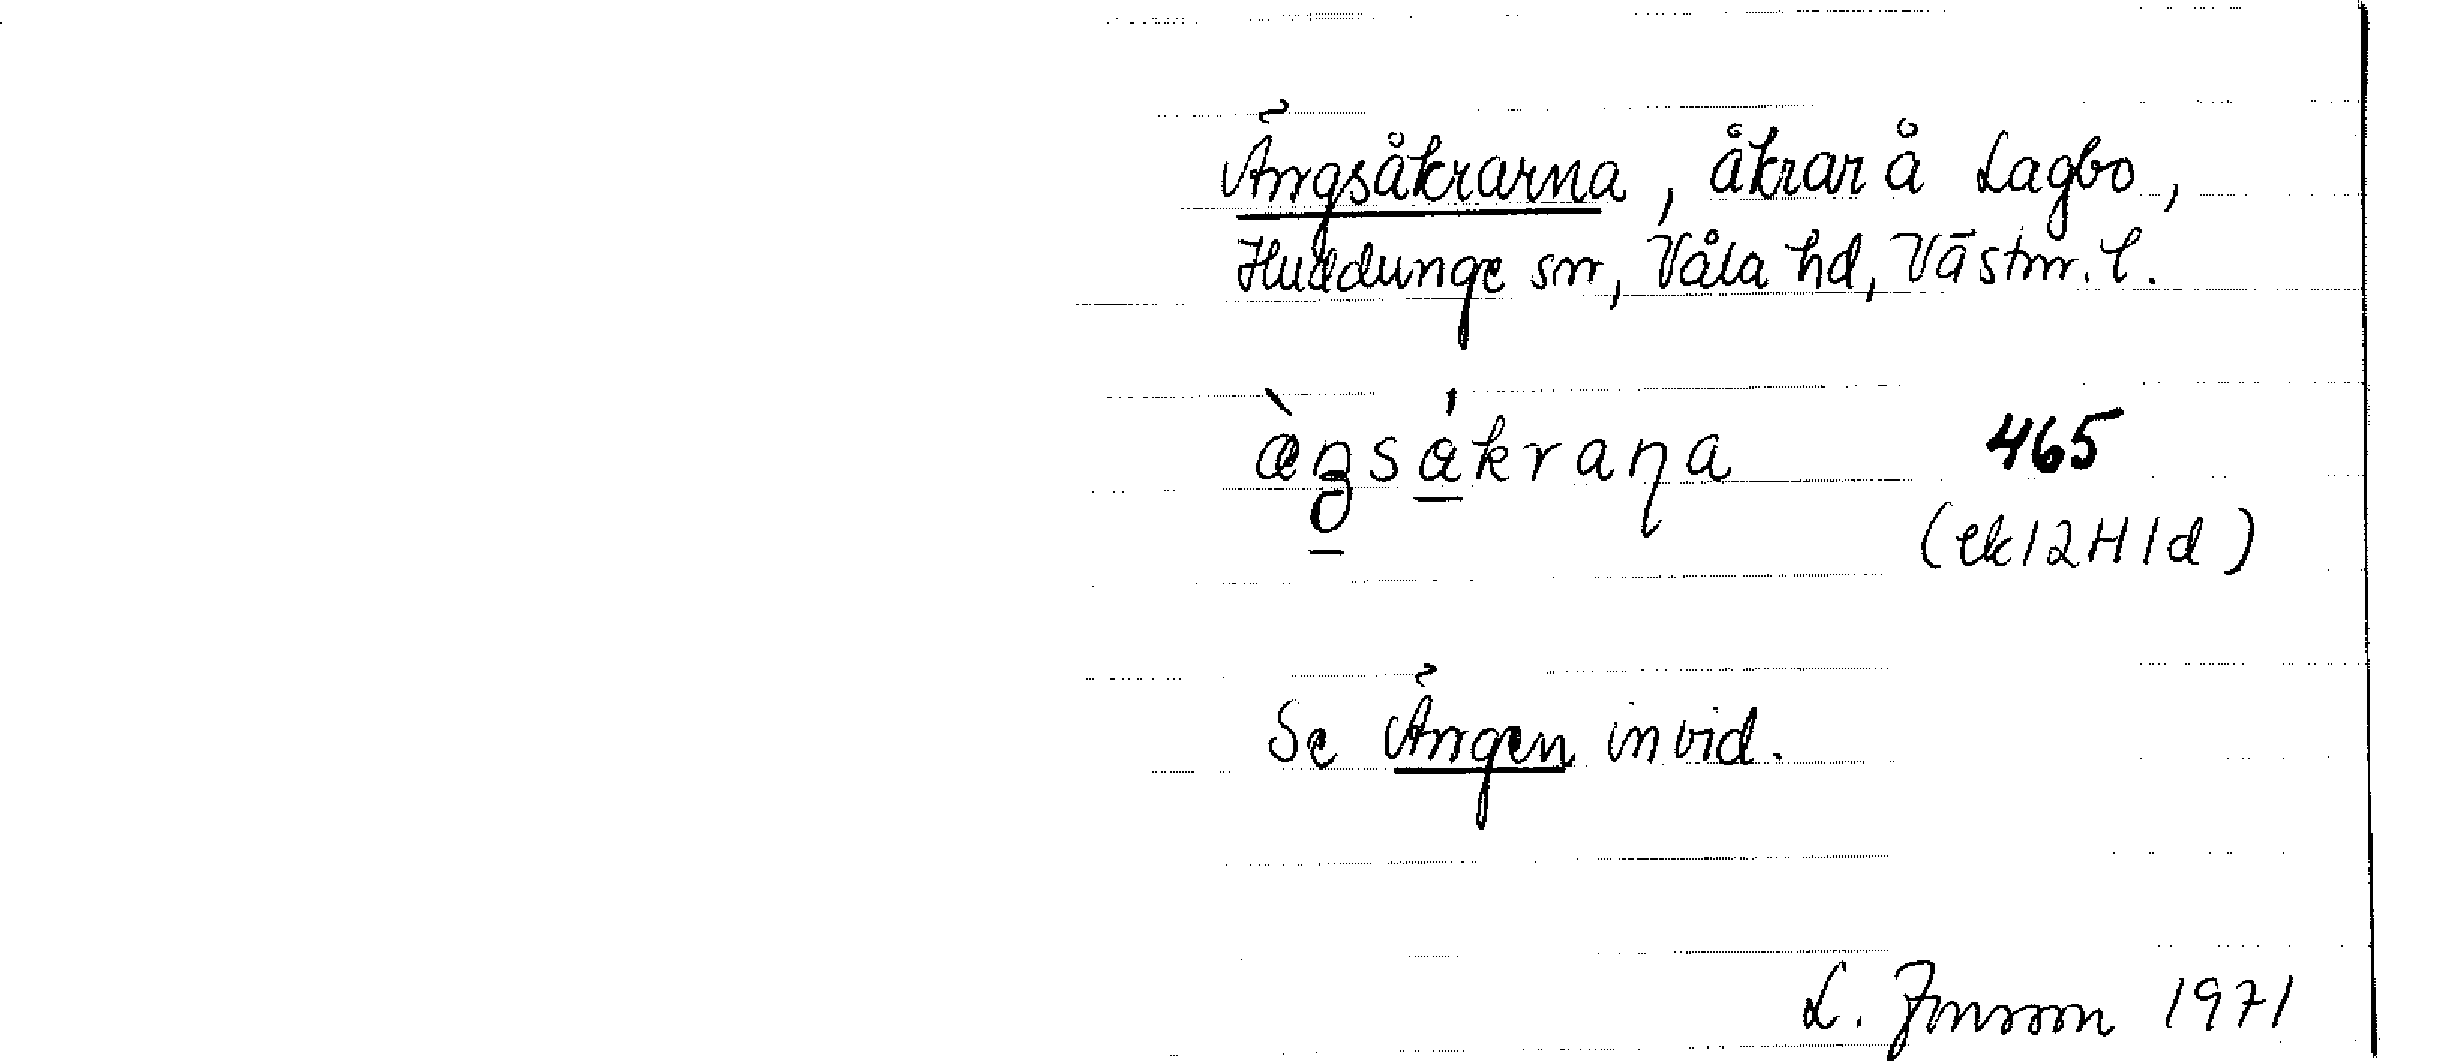 Ängsåkrarna, åkrar å Lagbo,
Huddunge sn, Våla hd, Västm. l.
465
(ek 12H1d)
Se Ängen invid.
L. 1971